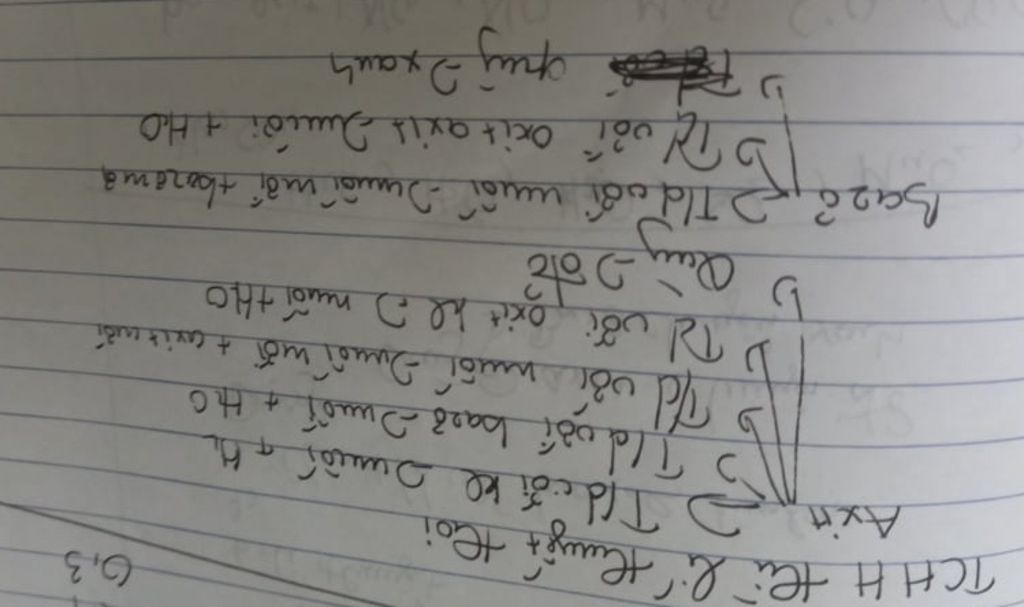 TCHH thì lí thuyết thôi
0,3
Axit
→ T/d với kl → muối + H2
→ T/d với bazơ → muối + H2O
→ T/d với muối → muối mới + axit mới
→ Td với oxit kl → muối + H2O
Quỳ → đỏ
Bazơ → T/d với muối → muối mới + bazơ mớ
→ Td với oxit axit → muối + H2O
→ quỳ → xanh